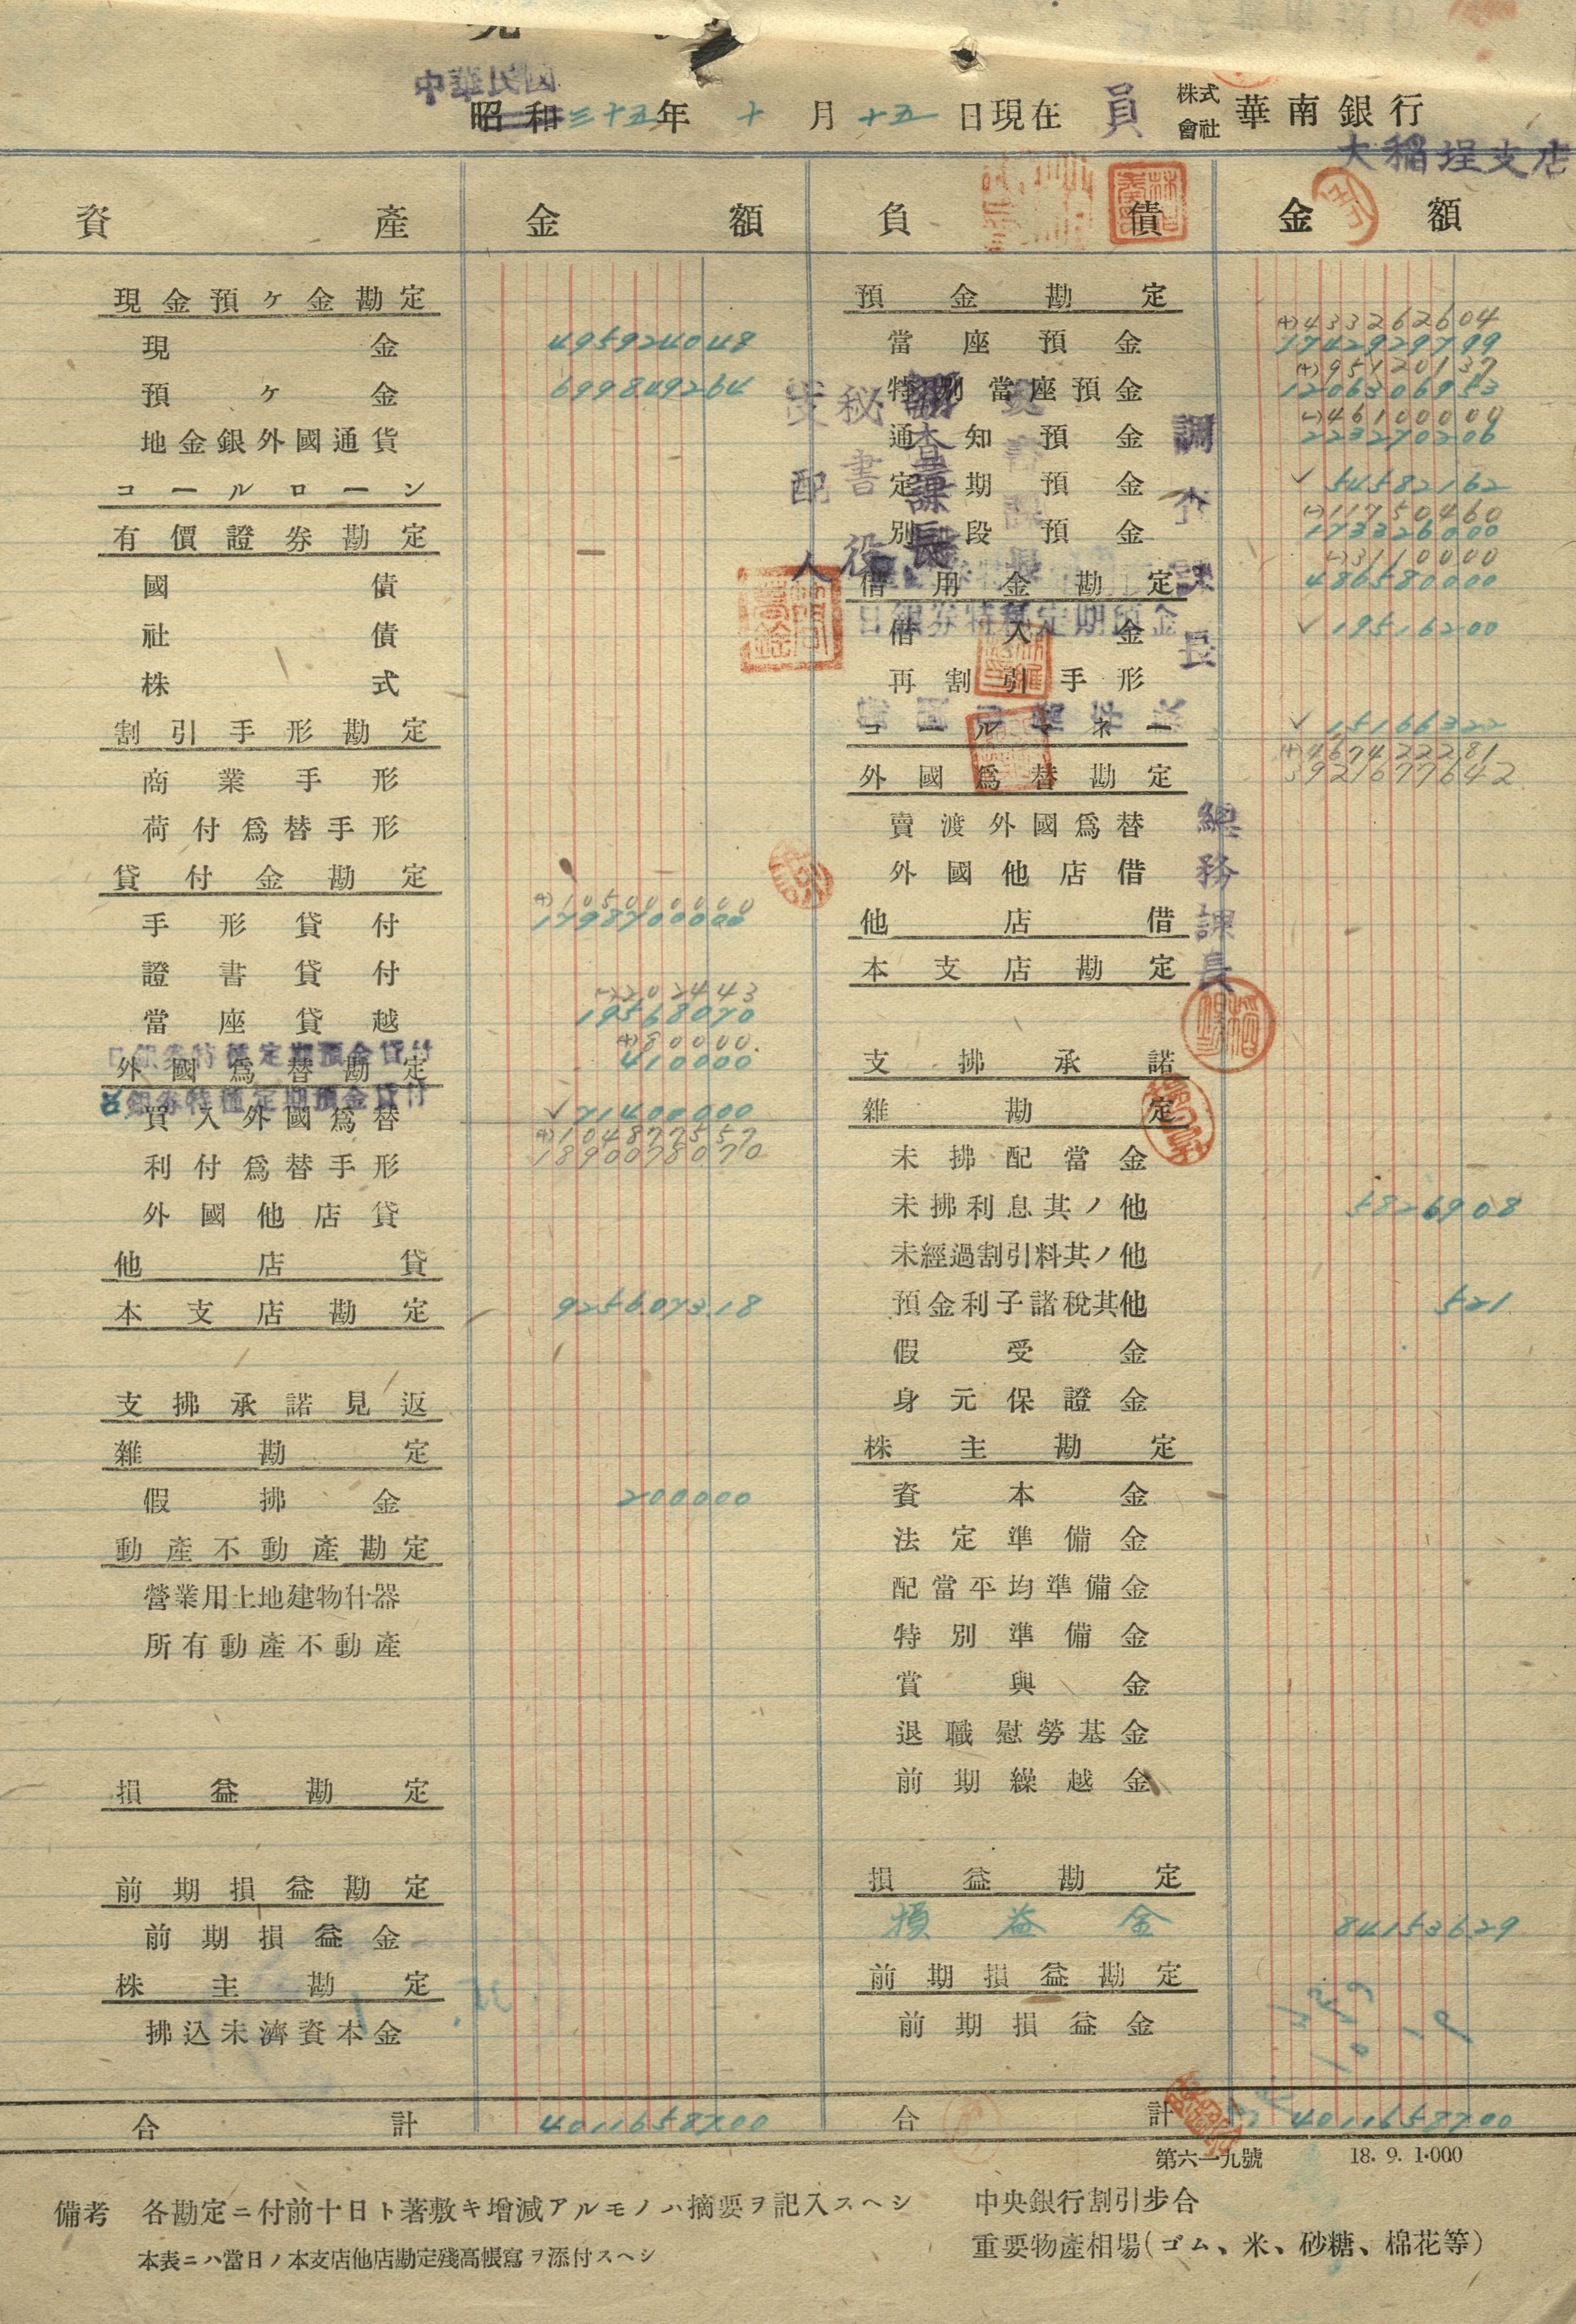 中華民國
昭和三十五年 十月十五日現在 員 株式會社 華南銀行
大稻埕支店
資產 金額 負債 金額
現金預ヶ金勘定
現金 495924048
預ヶ金 699849264
地金銀外國通貨
コールローン
有價證券勘定
國債
社債
株式
割引手形勘定
商業手形
荷付爲替手形
貸付金勘定
(+)105000000
手形貸付 1798700000
證書貸付
(-)202443
當座貸越 19568070
(+)80000
410000
日銀券特種定期預金貸付
外國爲替勘定
台銀券特種定期預金貸付
買入外國爲替 ✓71400000
(+)104877557
利付爲替手形 1890078070
外國他店貸
他店貸
本支店勘定 925607318
支拂承諾見返
雜勘定
假拂金 200000
動產不動產勘定
營業用土地建物什器
所有動產不動產
損益勘定
前期損益勘定
前期損益金
株主勘定
拂込未濟資本金
合計 4011658700
預金勘定
(+)433262604
當座預金 1742929799
(+)95120137
特別當座預金 1206306953
(-)46100000
通知預金 223270206
定期預金 ✓54582162
(-)11750460
別段預金 173326000
(-)3110000
借用金勘定 486580000
日銀券特種定期預金
借入金 ✓19516200
再割引手形
コールマネー ✓15166322
(+)467422281
外國爲替勘定 3921677642
賣渡外國爲替
外國他店借
他店借
本支店勘定
支拂承諾
雜勘定
未拂配當金
未拂利息其ノ他 5826908
未經過割引料其ノ他
預金利子諸稅其他 521
假受金
身元保證金
株主勘定
資本金
法定準備金
配當平均準備金
特別準備金
賞與金
退職慰勞基金
前期繰越金
損益勘定
損益金 84153629
前期損益勘定
前期損益金
合計 4011658700
秘書役
調查課長
調查課長
總務課長
支配人
第六一九號 18.9.1.000
備考 各勘定ニ付前十日ト著敷キ增減アルモノハ摘要ヲ記入スヘシ
本表ニハ當日ノ本支店他店勘定殘高帳寫ヲ添付スヘシ
中央銀行割引步合
重要物產相場(ゴム、米、砂糖、棉花等)